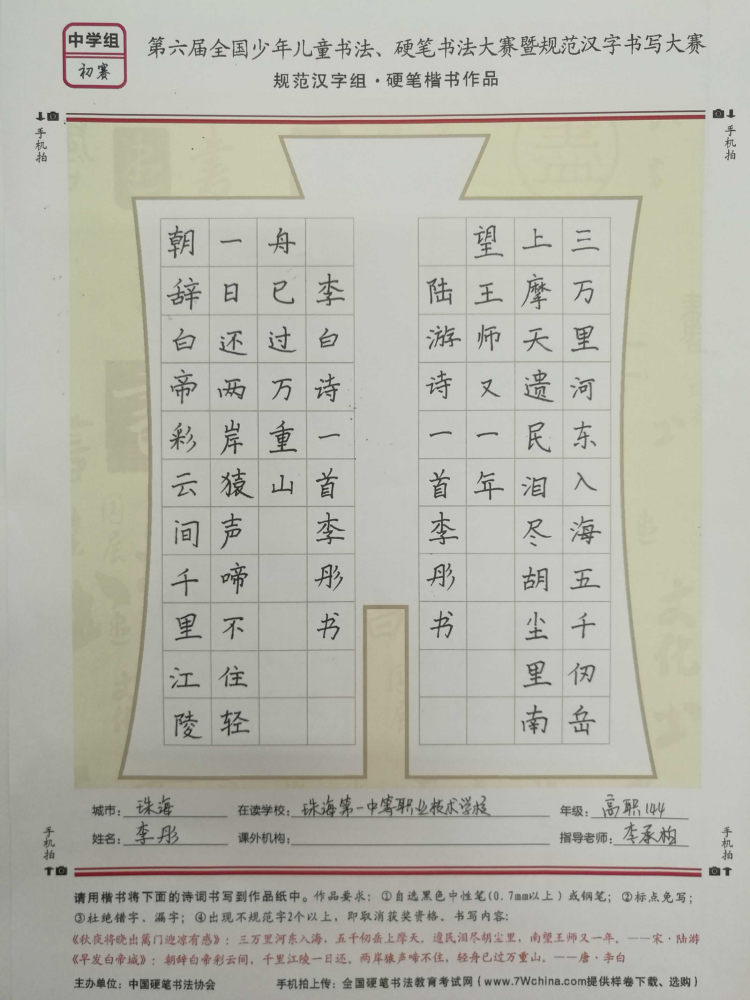 中学组
初赛
第六届全国少年儿童书法、硬笔书法大赛暨规范汉字书写大赛
规范汉字组·硬笔楷书作品
手机拍
手机拍
三万里河东入海五千仞岳
上摩天遗民泪尽胡尘里南
望王师又一年
陆游诗一首李彤书
朝辞白帝彩云间千里江陵
一日还两岸猿声啼不住轻
舟已过万重山
李白诗一首李彤书
城市：珠海 在读学校：珠海第一中等职业技术学校 年级：高职144
姓名：李彤 课外机构： 指导老师：李承柏
手机拍
手机拍
请用楷书将下面的诗词书写到作品纸中。作品要求：①自选黑色中性笔(0.7mm以上)或钢笔；②标点免写；
③杜绝错字、漏字；④出现不规范字2个以上，即取消获奖资格。书写内容：
《秋夜将晓出篱门迎凉有感》：三万里河东入海，五千仞岳上摩天。遗民泪尽胡尘里，南望王师又一年。——宋·陆游
《早发白帝城》：朝辞白帝彩云间，千里江陵一日还。两岸猿声啼不住，轻舟已过万重山。——唐·李白
主办单位：中国硬笔书法协会 手机拍上传：全国硬笔书法教育考试网(www.7Wchina.com提供样卷下载、选购)